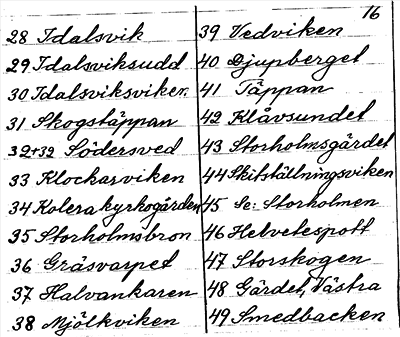 16
28 Idalsvik
29 Idalsviksudd
30 Idalsviksviken.
31 Skogstäppan
32+32 Södersved
33 Klockarviken
34 Kolerakyrkogården
35 Storholmsbron
36 Gräsvarpet
37 Halvankaren
38 Mjölkviken
39 Vedviken
40 Djupberget
41 Täppan
42 Klåvsundet
43 Storholmsgärdet
44 Skitställningsviken
45 Se: Storholmen
46 Helvetespott
47 Storskogen
48 Gärdet, Västra
49 Smedbacken